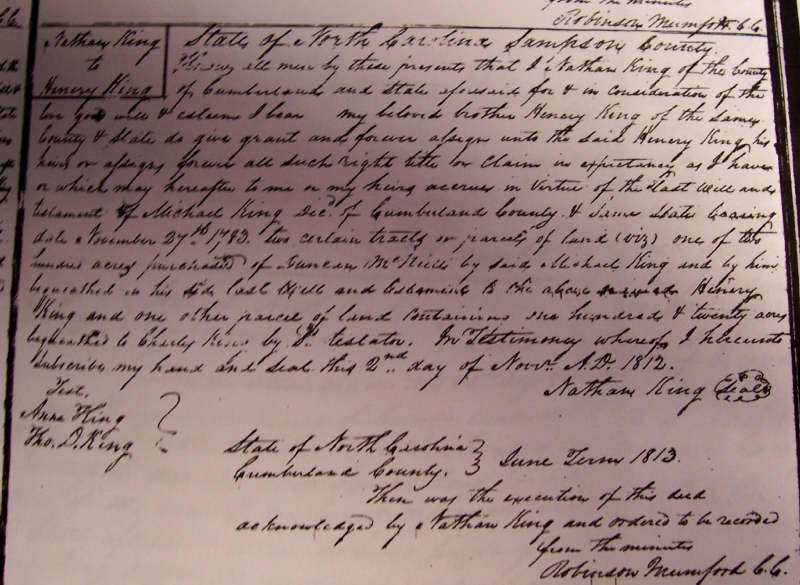 from the minutes
Robinson Mumford C.C.
Nathan King
to
Henery King
State of North Carolina Sampson County.
Know all men by these presents that I Nathan King of the County
of Cumberland and State aforesaid for & in consideration of the
love good will & esteem I bear my beloved brother Henery King of the same
County & State do give grant and forever assign unto the said Henery King his
heirs or assigns forever all such right title or claim in expectancy as I have
or which may hereafter to me or my heirs accrue in virtue of the Last Will and
testament of Michael King Decd. of Cumberland County & same State bearing
date November 27th 1783. two certain tracts or parcels of land (viz) one of two
hundred acres purchased of Duncan McNeill by said Michael King and by him
bequeathed in his last Will and testament to the above Henery
King and one other parcel of land containing one hundred & twenty acres
bequeathed to Charles King by Sd. testator. In Testimony whereof I hereunto
subscribe my hand and seal this 2nd day of Novr. A.D. 1812.
Nathan King (Seal)
Test,
Anna King
Tho. D. King
State of North Carolina
Cumberland County. June Term 1813.
Then was the execution of this deed
acknowledged by Nathan King and ordered to be recorded
from the minutes
Robinson Mumford C.C.